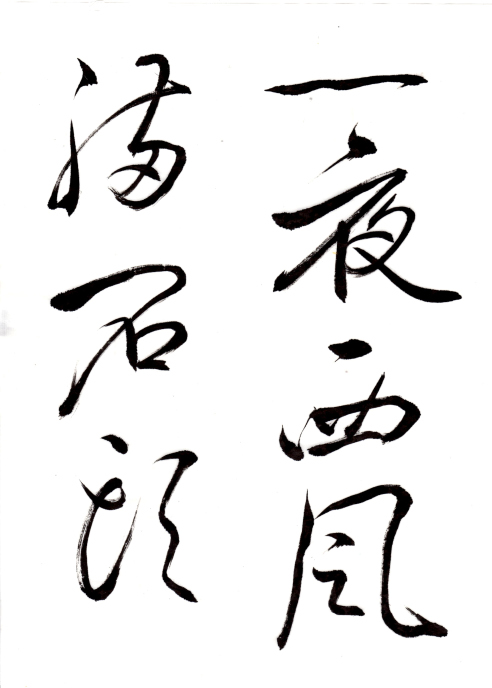 一夜西風
満石頭